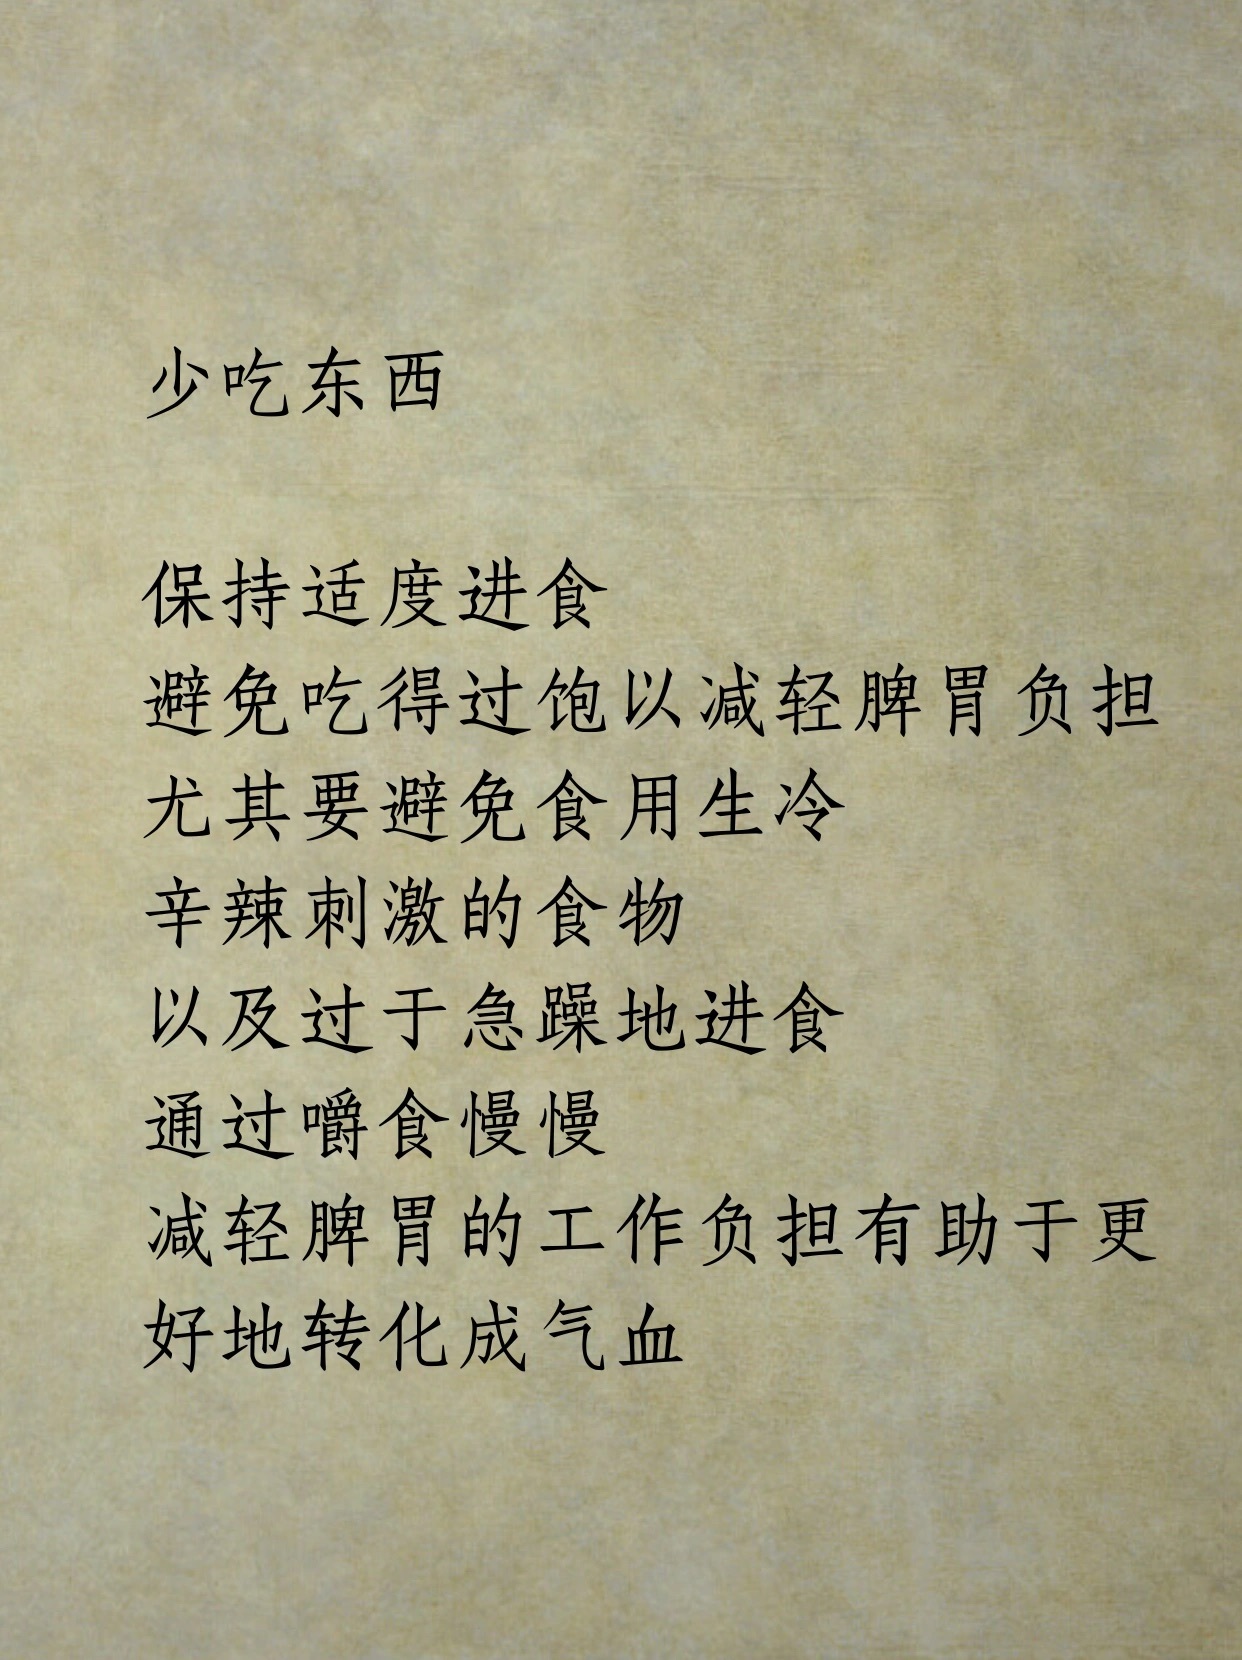 少吃东西
保持适度进食
避免吃得过饱以减轻脾胃负担
尤其要避免食用生冷
辛辣刺激的食物
以及过于急躁地进食
通过嚼食慢慢
减轻脾胃的工作负担有助于更
好地转化成气血